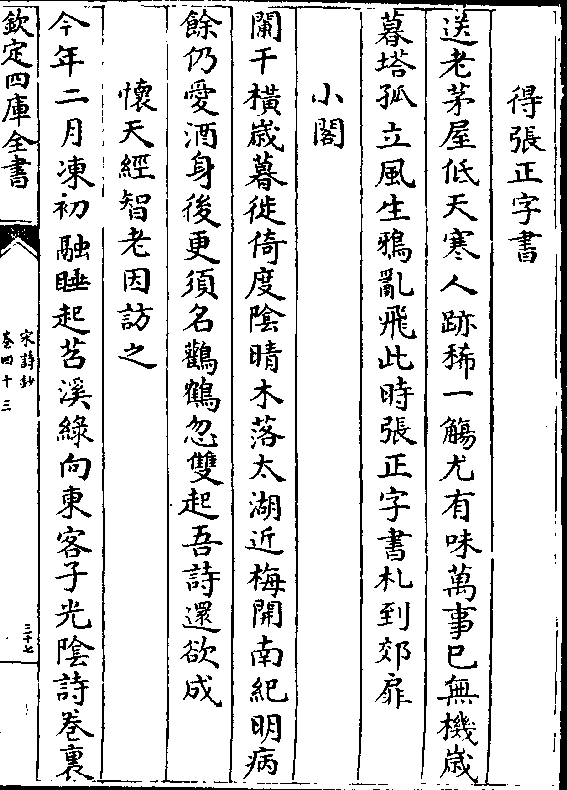 得張正字書
送老茅屋低天寒人跡稀一觴尤有味萬事已無機歲
暮塔孤立風生鴉亂飛此時張正字書札到郊扉
小閣
闌干橫歲暮徙倚度陰晴木落太湖近梅開南紀明病
餘仍愛酒身後更須名鸛鶴忽雙起吾詩還欲成
懷天經智老因訪之
今年二月凍初融睡起苕溪綠向東客子光陰詩卷裏
欽定四庫全書
宋詩鈔
卷四十三
三十七